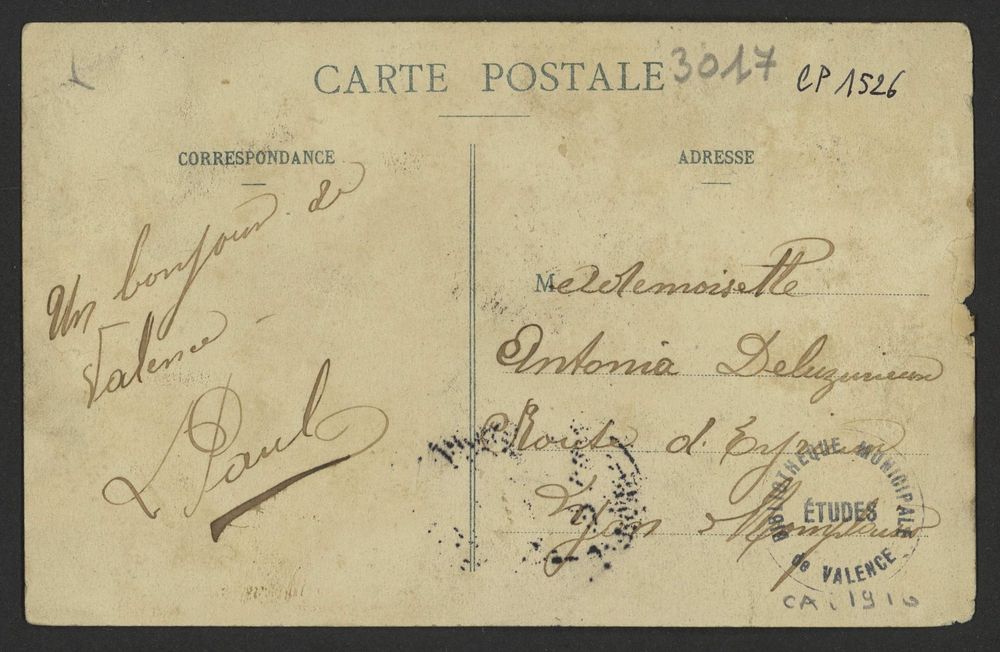 CARTE POSTALE
3017
CP 1526
CORRESPONDANCE
Un bonjour de
Valence
Paul
ADRESSE
Mademoiselle
Antonia
Route d'
Lyon
BIBLIOTHÈQUE MUNICIPALE
ÉTUDES
de VALENCE
CA. 1910